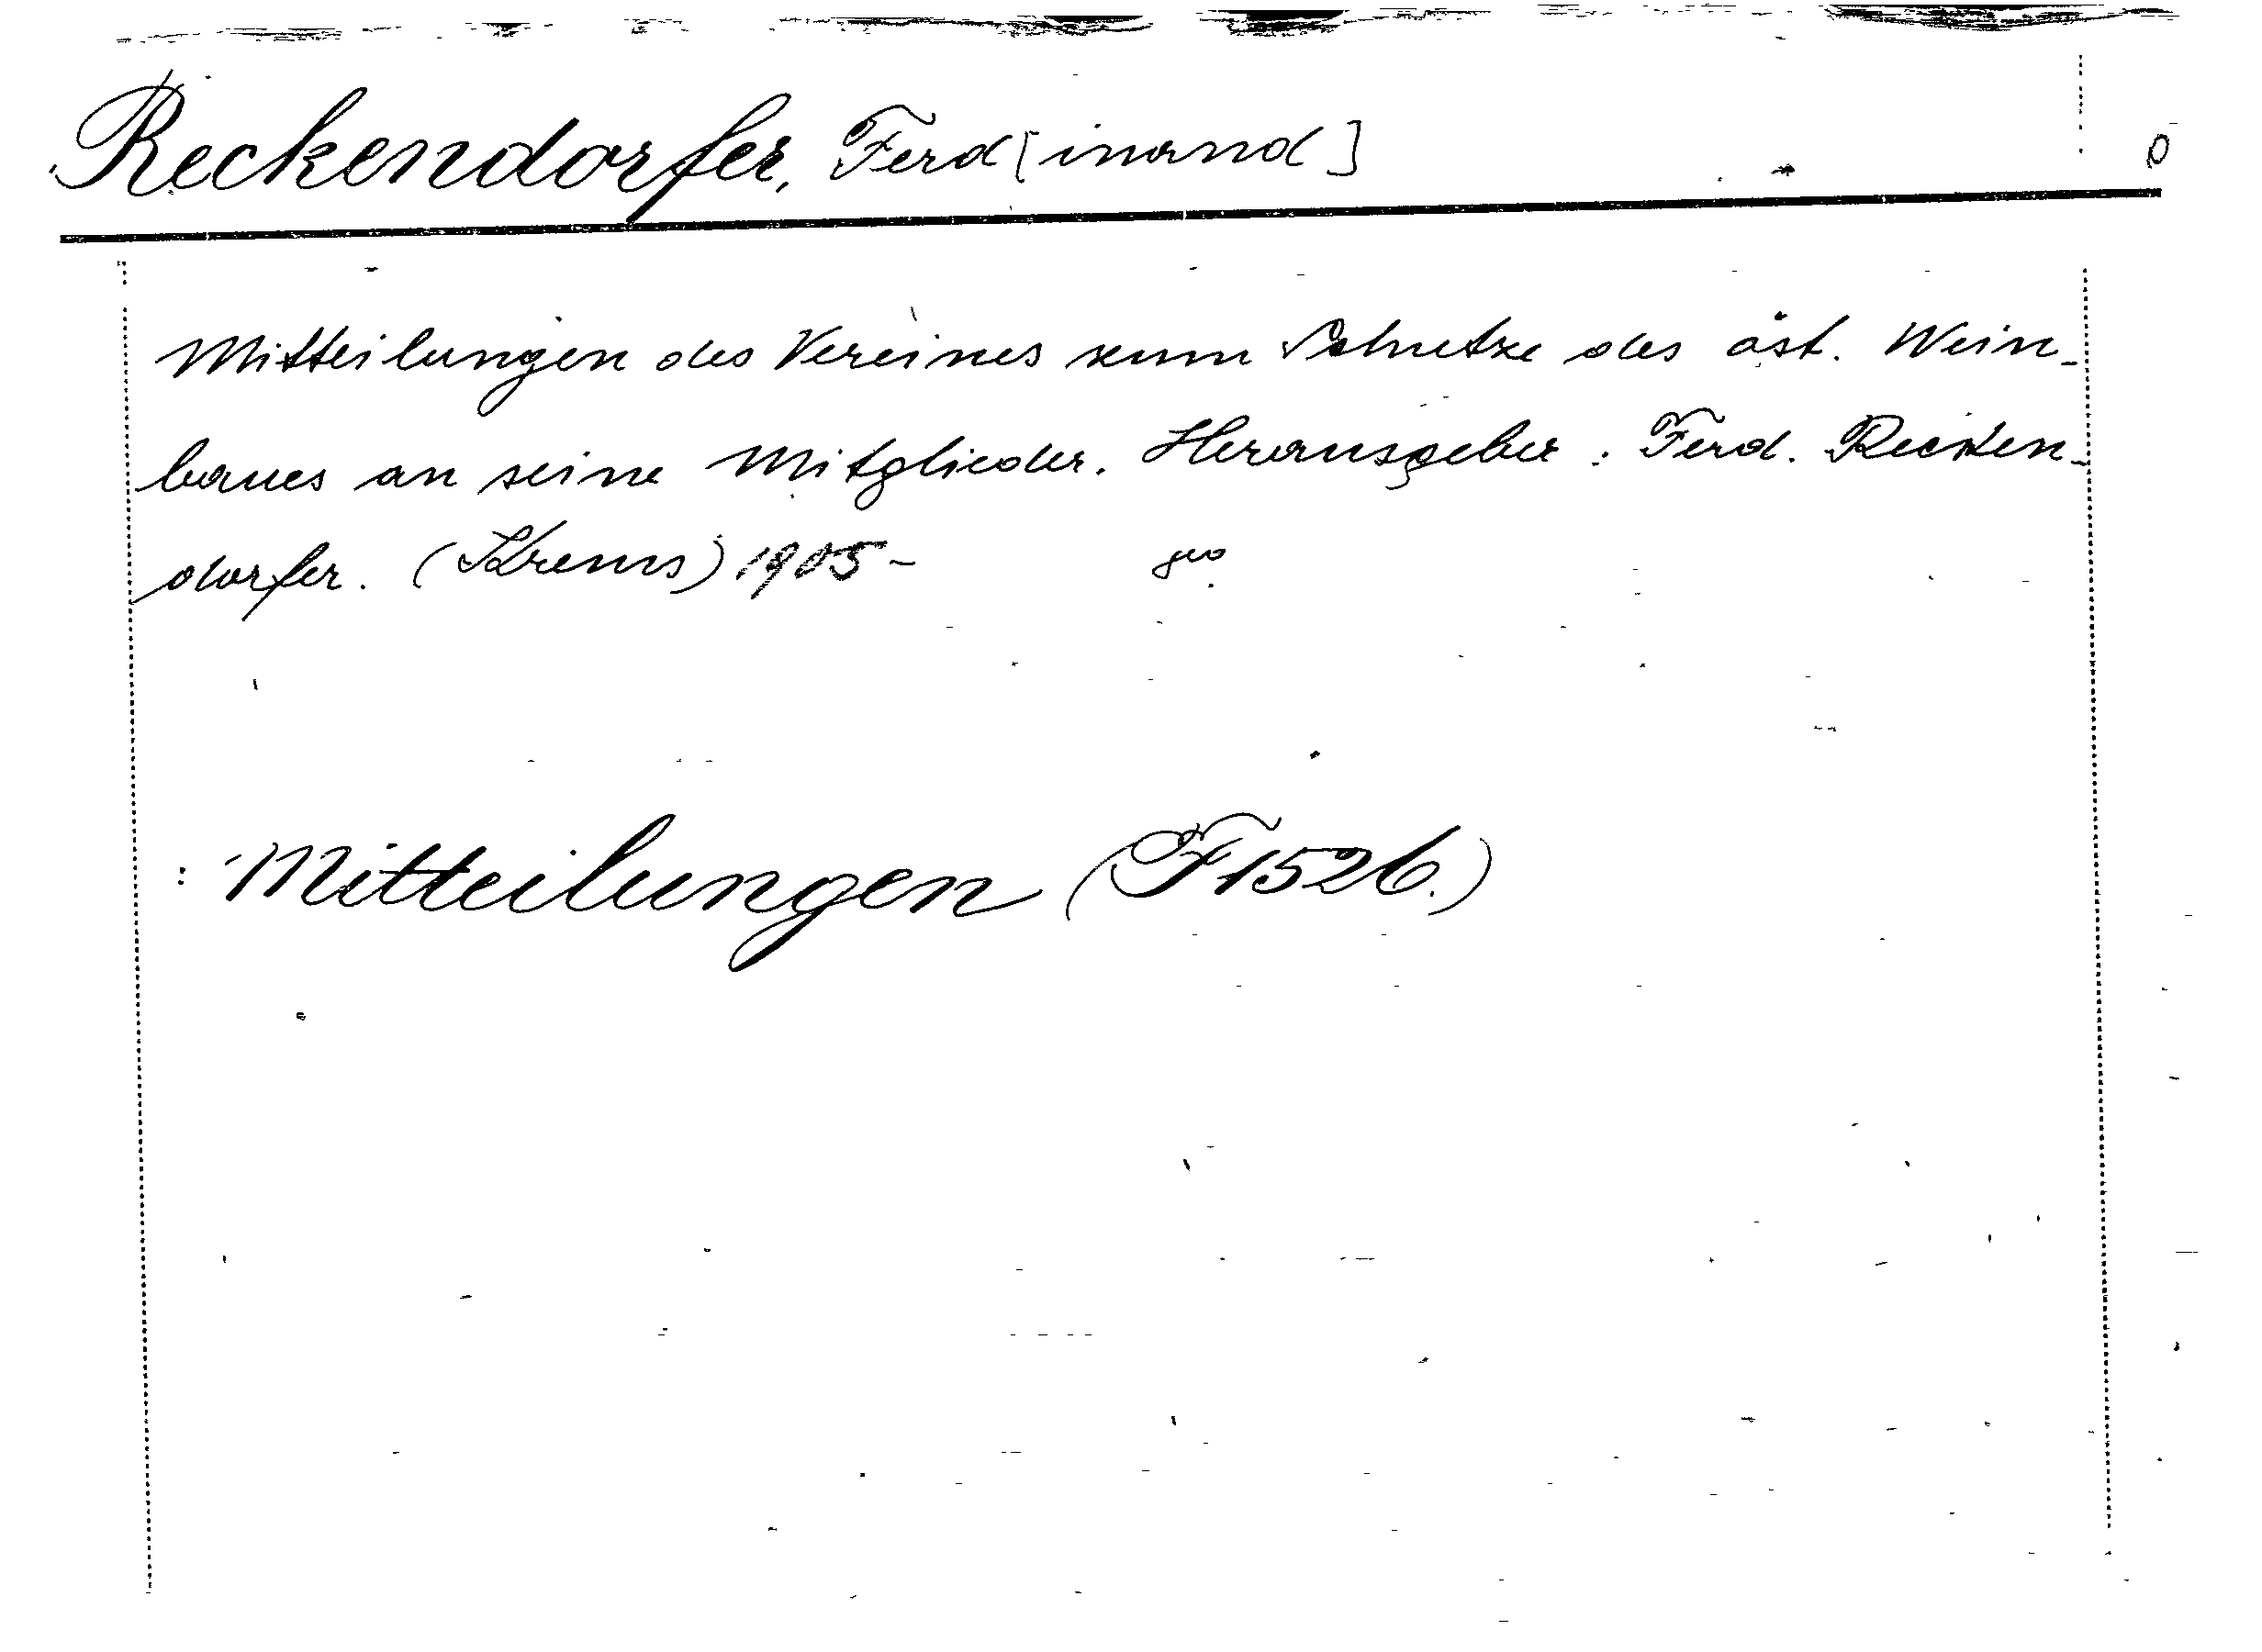 Reckendorfer, Ferd[inand]
Mitteilungen des Vereines zum Schutze des öst. Wein-
baues an seine Mitglieder. Herausgeber: Ferd. Recken-
dorfer. (Krems) 1905-
: Mitteilungen (F1526.)